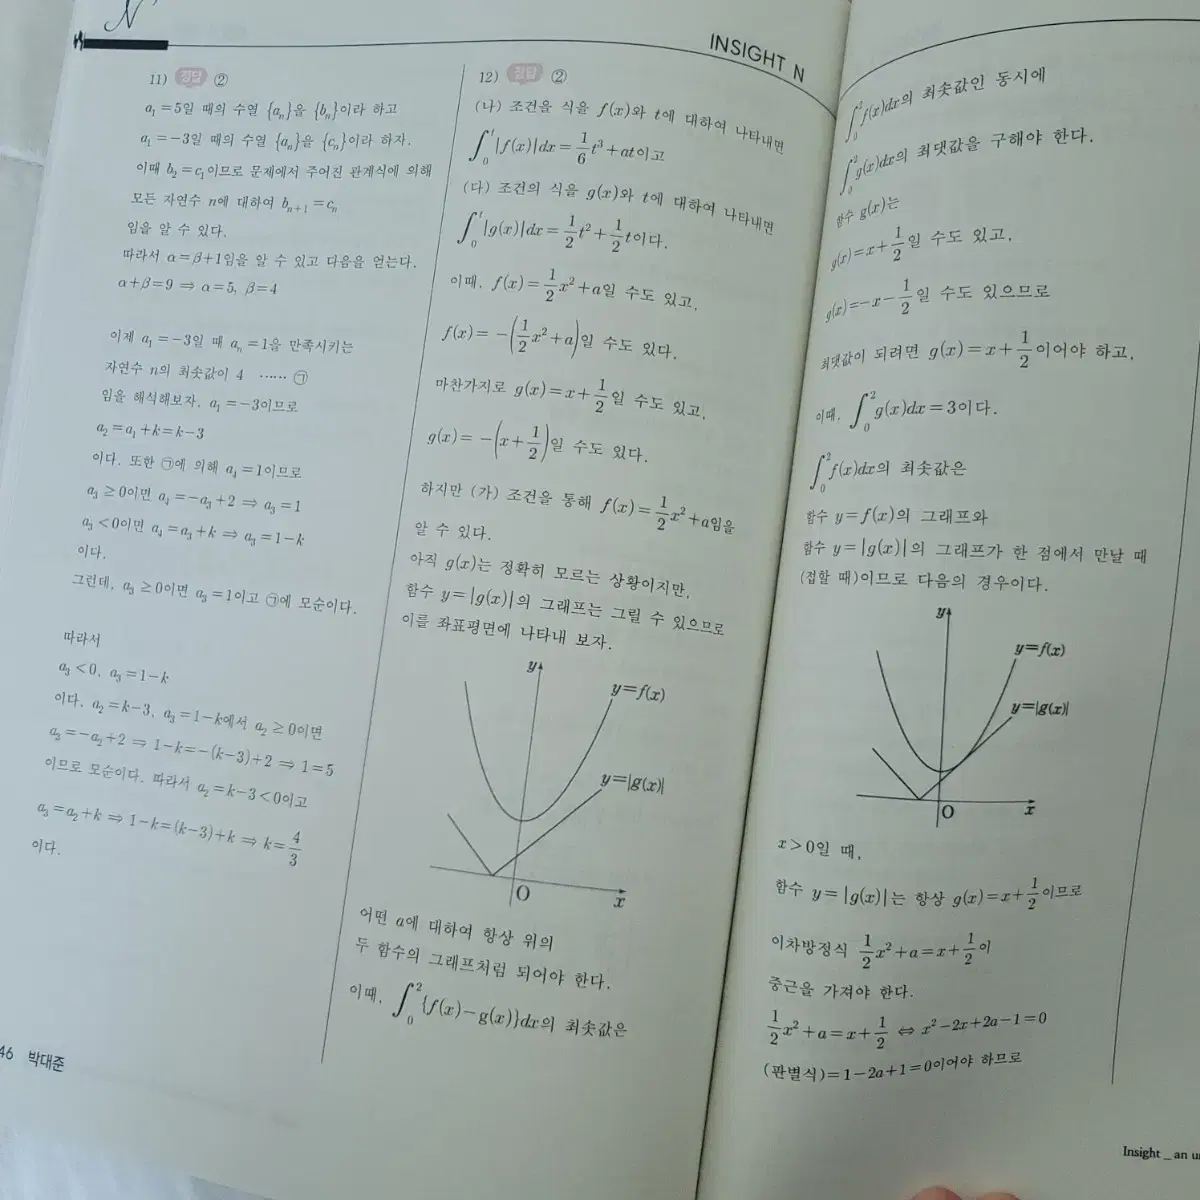 N
INSIGHT N
11) 정답 ②
a₁=5일 때의 수열 {aₙ}을 {bₙ}이라 하고
a₁=-3일 때의 수열 {aₙ}을 {cₙ}이라 하자.
이때 b₂=c₁이므로 문제에서 주어진 관계식에 의해
모든 자연수 n에 대하여 bₙ₊₁=cₙ
임을 알 수 있다.
따라서 α=β+1임을 알 수 있고 다음을 얻는다.
α+β=9 ⇒ α=5, β=4
이제 a₁=-3일 때 aₙ=1을 만족시키는
자연수 n의 최솟값이 4 …… ㉠
임을 해석해보자. a₁=-3이므로
a₂=a₁+k=k-3
이다. 또한 ㉠에 의해 a₄=1이므로
a₃≥0이면 a₄=-a₃+2 ⇒ a₃=1
a₃<0이면 a₄=a₃+k ⇒ a₃=1-k
이다.
그런데, a₃≥0이면 a₃=1이고 ㉠에 모순이다.
따라서
a₃<0, a₃=1-k
이다. a₂=k-3, a₃=1-k에서 a₂≥0이면
a₃=-a₂+2 ⇒ 1-k=-(k-3)+2 ⇒ 1=5
이므로 모순이다. 따라서 a₂=k-3<0이고
a₃=a₂+k ⇒ 1-k=(k-3)+k ⇒ k=4/3
이다.
46 박대준
12) 정답 ②
(나) 조건을 식을 f(x)와 t에 대하여 나타내면
∫₀ᵗ|f(x)|dx=1/6t³+at이고
(다) 조건의 식을 g(x)와 t에 대하여 나타내면
∫₀ᵗ|g(x)|dx=1/2t²+1/2t이다.
이때, f(x)=1/2x²+a일 수도 있고,
f(x)=-(1/2x²+a)일 수도 있다.
마찬가지로 g(x)=x+1/2일 수도 있고,
g(x)=-(x+1/2)일 수도 있다.
하지만 (가) 조건을 통해 f(x)=1/2x²+a임을
알 수 있다.
아직 g(x)는 정확히 모르는 상황이지만,
함수 y=|g(x)|의 그래프는 그릴 수 있으므로
이를 좌표평면에 나타내 보자.
y
y=f(x)
y=|g(x)|
O
x
어떤 a에 대하여 항상 위의
두 함수의 그래프처럼 되어야 한다.
이때, ∫₀²{f(x)-g(x)}dx의 최솟값은
∫₀²f(x)dx의 최솟값인 동시에
∫₀²g(x)dx의 최댓값을 구해야 한다.
함수 g(x)는
g(x)=x+1/2일 수도 있고,
g(x)=-x-1/2일 수도 있으므로
최댓값이 되려면 g(x)=x+1/2이어야 하고,
이때, ∫₀²g(x)dx=3이다.
∫₀²f(x)dx의 최솟값은
함수 y=f(x)의 그래프와
함수 y=|g(x)|의 그래프가 한 점에서 만날 때
(접할 때)이므로 다음의 경우이다.
y
y=f(x)
y=|g(x)|
O
x
x>0일 때,
함수 y=|g(x)|는 항상 g(x)=x+1/2이므로
이차방정식 1/2x²+a=x+1/2이
중근을 가져야 한다.
1/2x²+a=x+1/2 ⇔ x²-2x+2a-1=0
(판별식)=1-2a+1=0이어야 하므로
Insight _ an